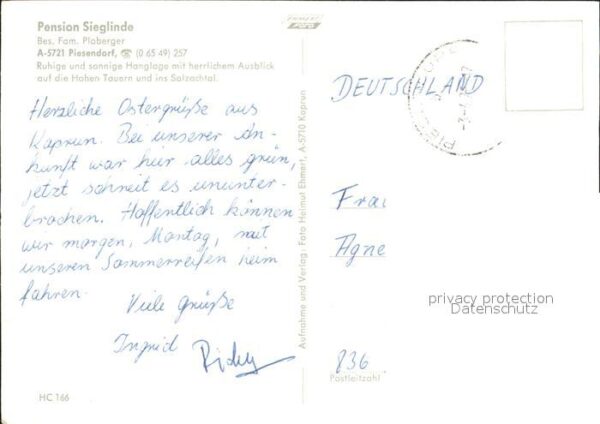 Pension Sieglinde
Bes. Fam. Ploberger
A-5721 Piesendorf, ☎ (0 65 49) 257
Ruhige und sonnige Hanglage mit herrlichem Ausblick
auf die Hohen Tauern und ins Salzachtal.
Herzliche Ostergrüße aus
Kaprun. Bei unserer An-
kunft war hier alles grün,
jetzt schneit es ununter-
brochen. Hoffentlich können
wir morgen, Montag, mit
unseren Sommerreifen heim
fahren.
Viele Grüße
Ingrid
HC 166
Aufnahme und Verlag: Foto Helmut Ehmert, A-5710 Kaprun
DEUTSCHLAND
Frau
Agne
privacy protection
Datenschutz
836
Postleitzahl